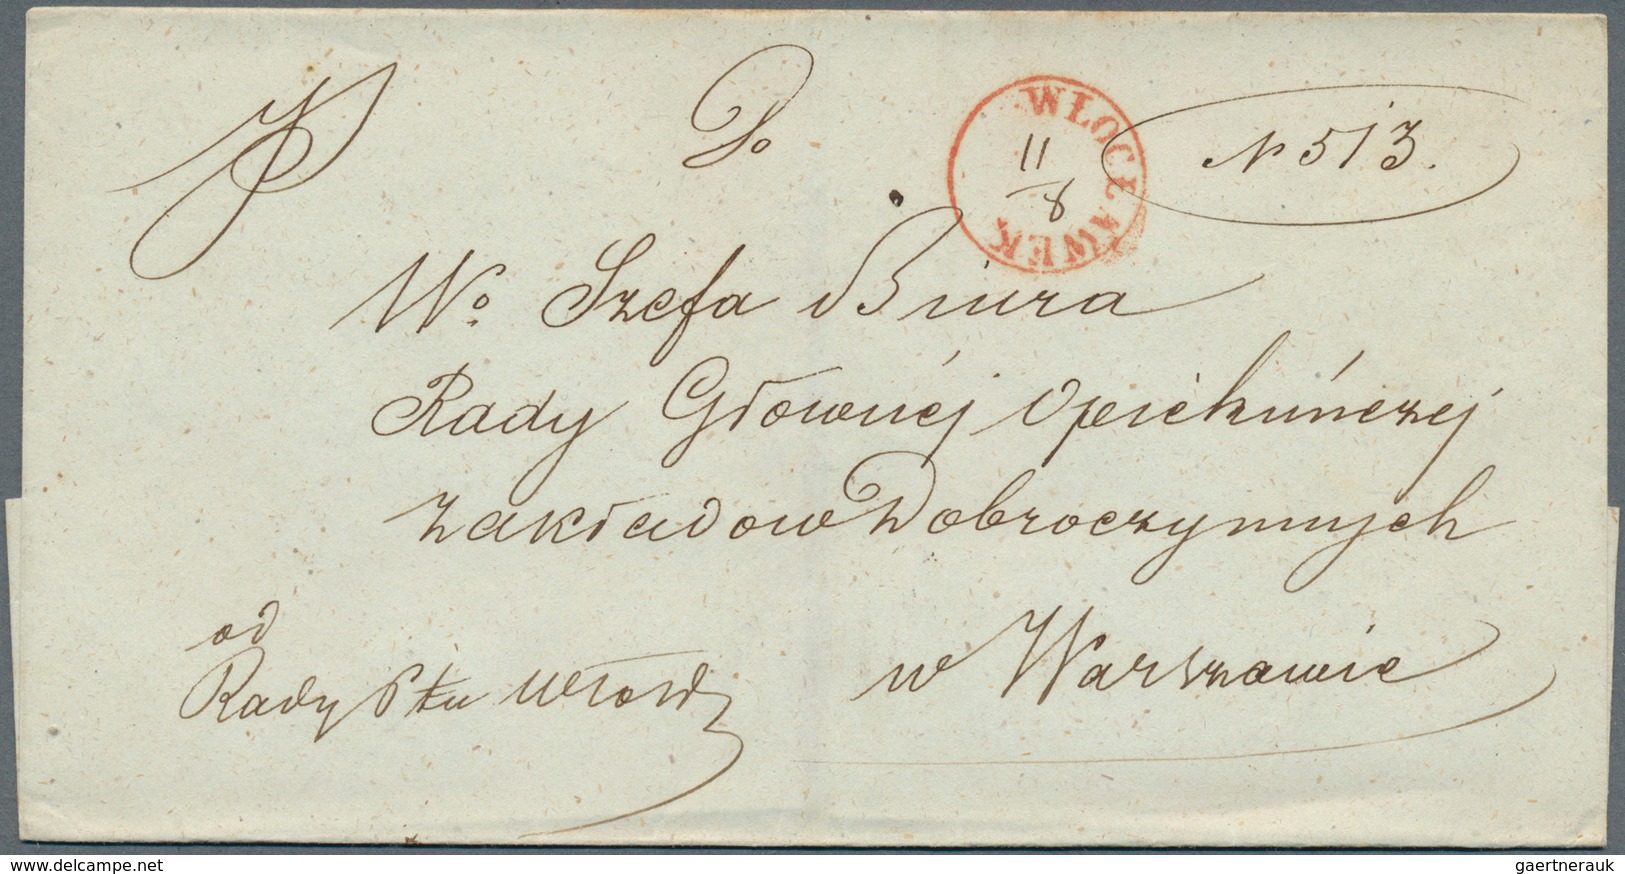 Do
WŁOCŁAWEK
11/8
N 513.
Wo. Szefa Biura
Rady Głównéj Opiekúńczej
Zakładow Dobroczynnych
w Warszawie
od
Rady
www.delcampe.net
gaertnerauk